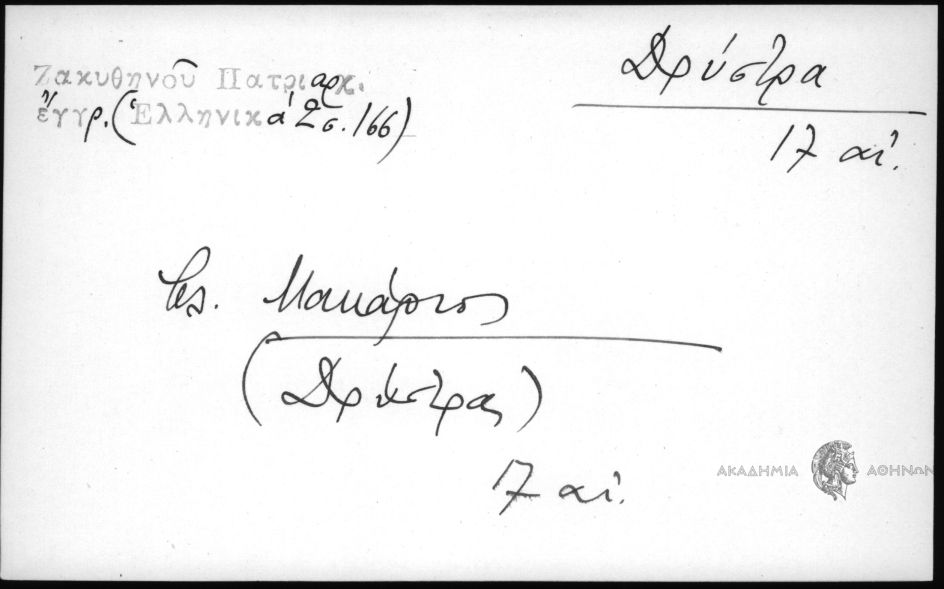 Ζακυθηνοῦ Πατριαρχ.
ἔγγρ. (Ἑλληνικά 2 σ. 166)
Δρύστρα
17 αἰ.
Μακάριος
(Δρύστρας)
17 αἰ.
ΑΚΑΔΗΜΙΑ ΑΘΗΝΩΝ